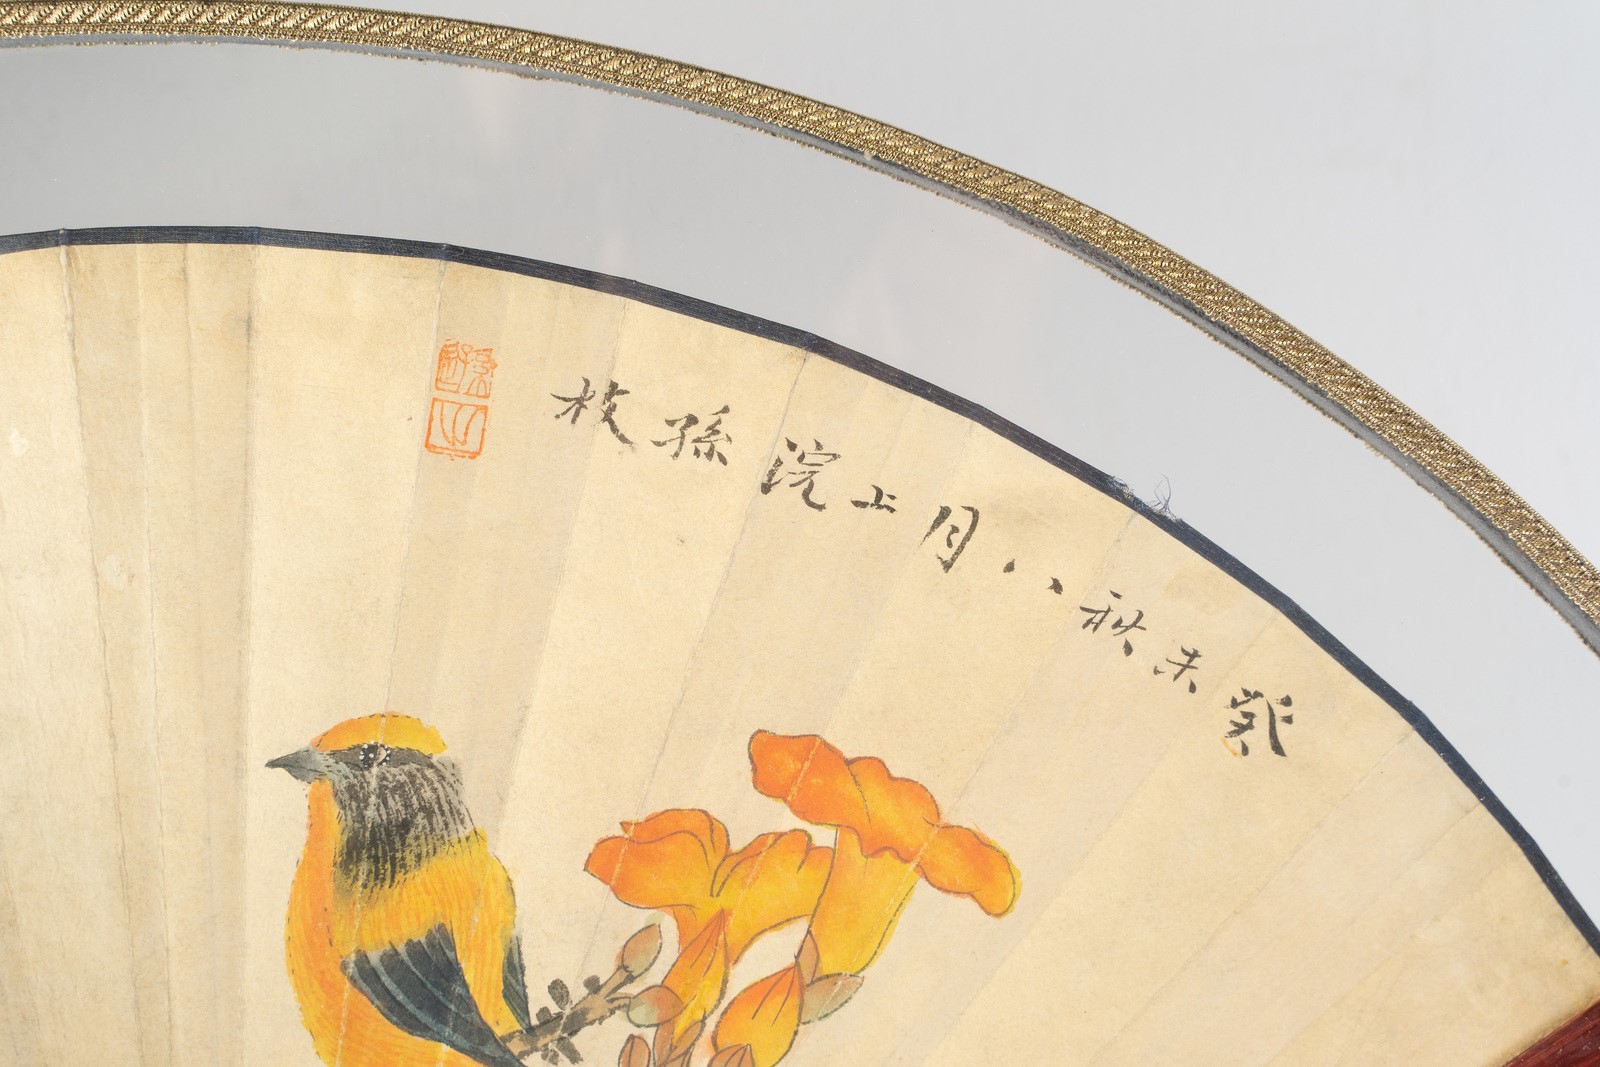 癸未秋八月上浣孫枝